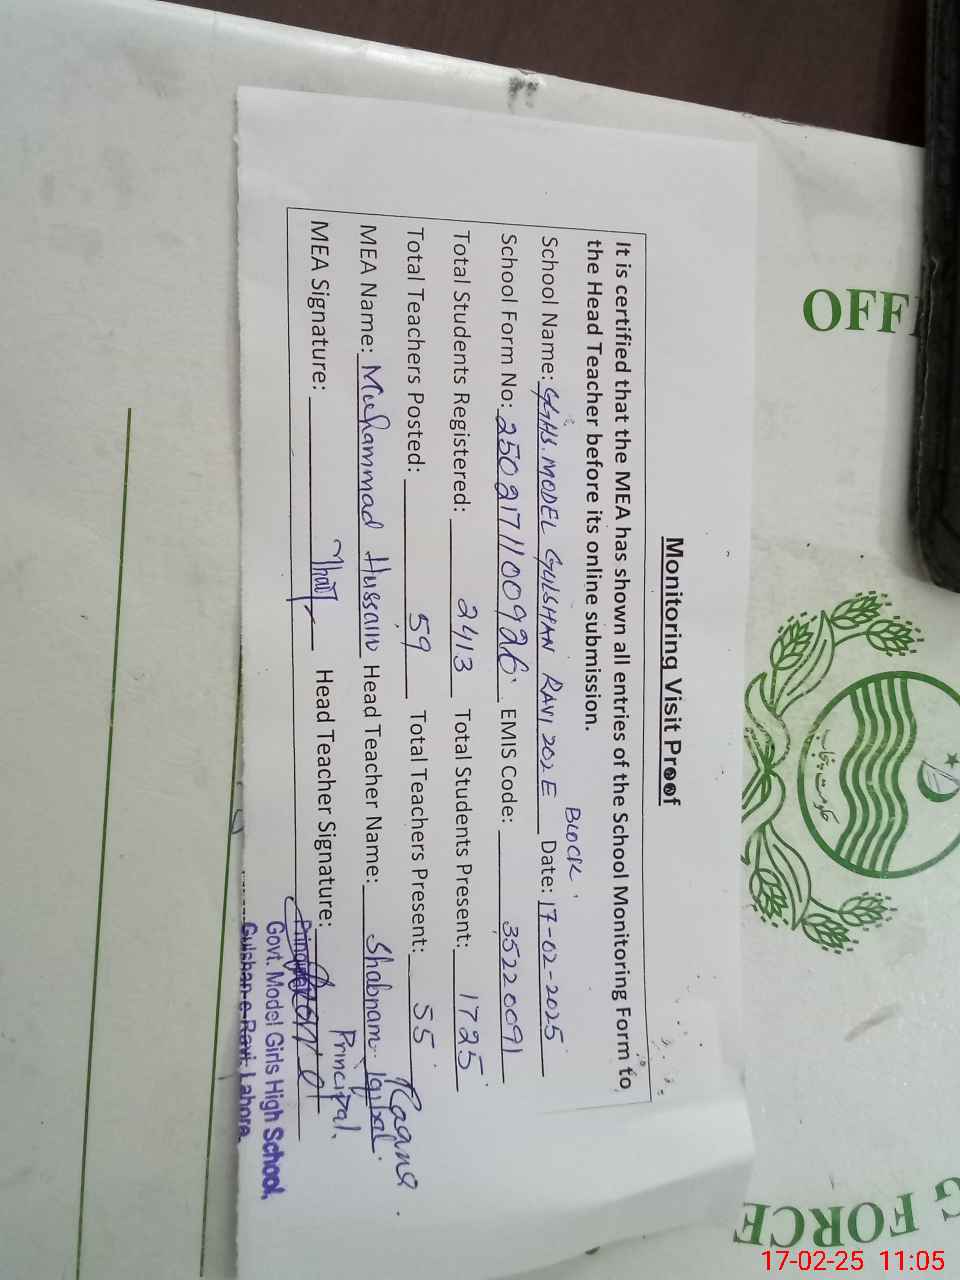 Monitoring Visit Proof
It is certified that the MEA has shown all entries of the School Monitoring Form to
the Head Teacher before its online submission.
BLOCK.
School Name: GGHS. MODEL GULSHAN RAVI 202 E Date: 17-02-2025
School Form No: 2502171100926. EMIS Code: 35220091
Total Students Registered: 2413 Total Students Present: 1725
Total Teachers Posted: 59 Total Teachers Present: 55
MEA Name: Muhammad Hussain Head Teacher Name: Shabnam Iqbal.
Principal.
MEA Signature: Head Teacher Signature:
Principal
Govt. Model Girls High School,
Gulshan-e-Ravi, Lahore.
حکومت پنجاب
G FORCE
17-02-25 11:05